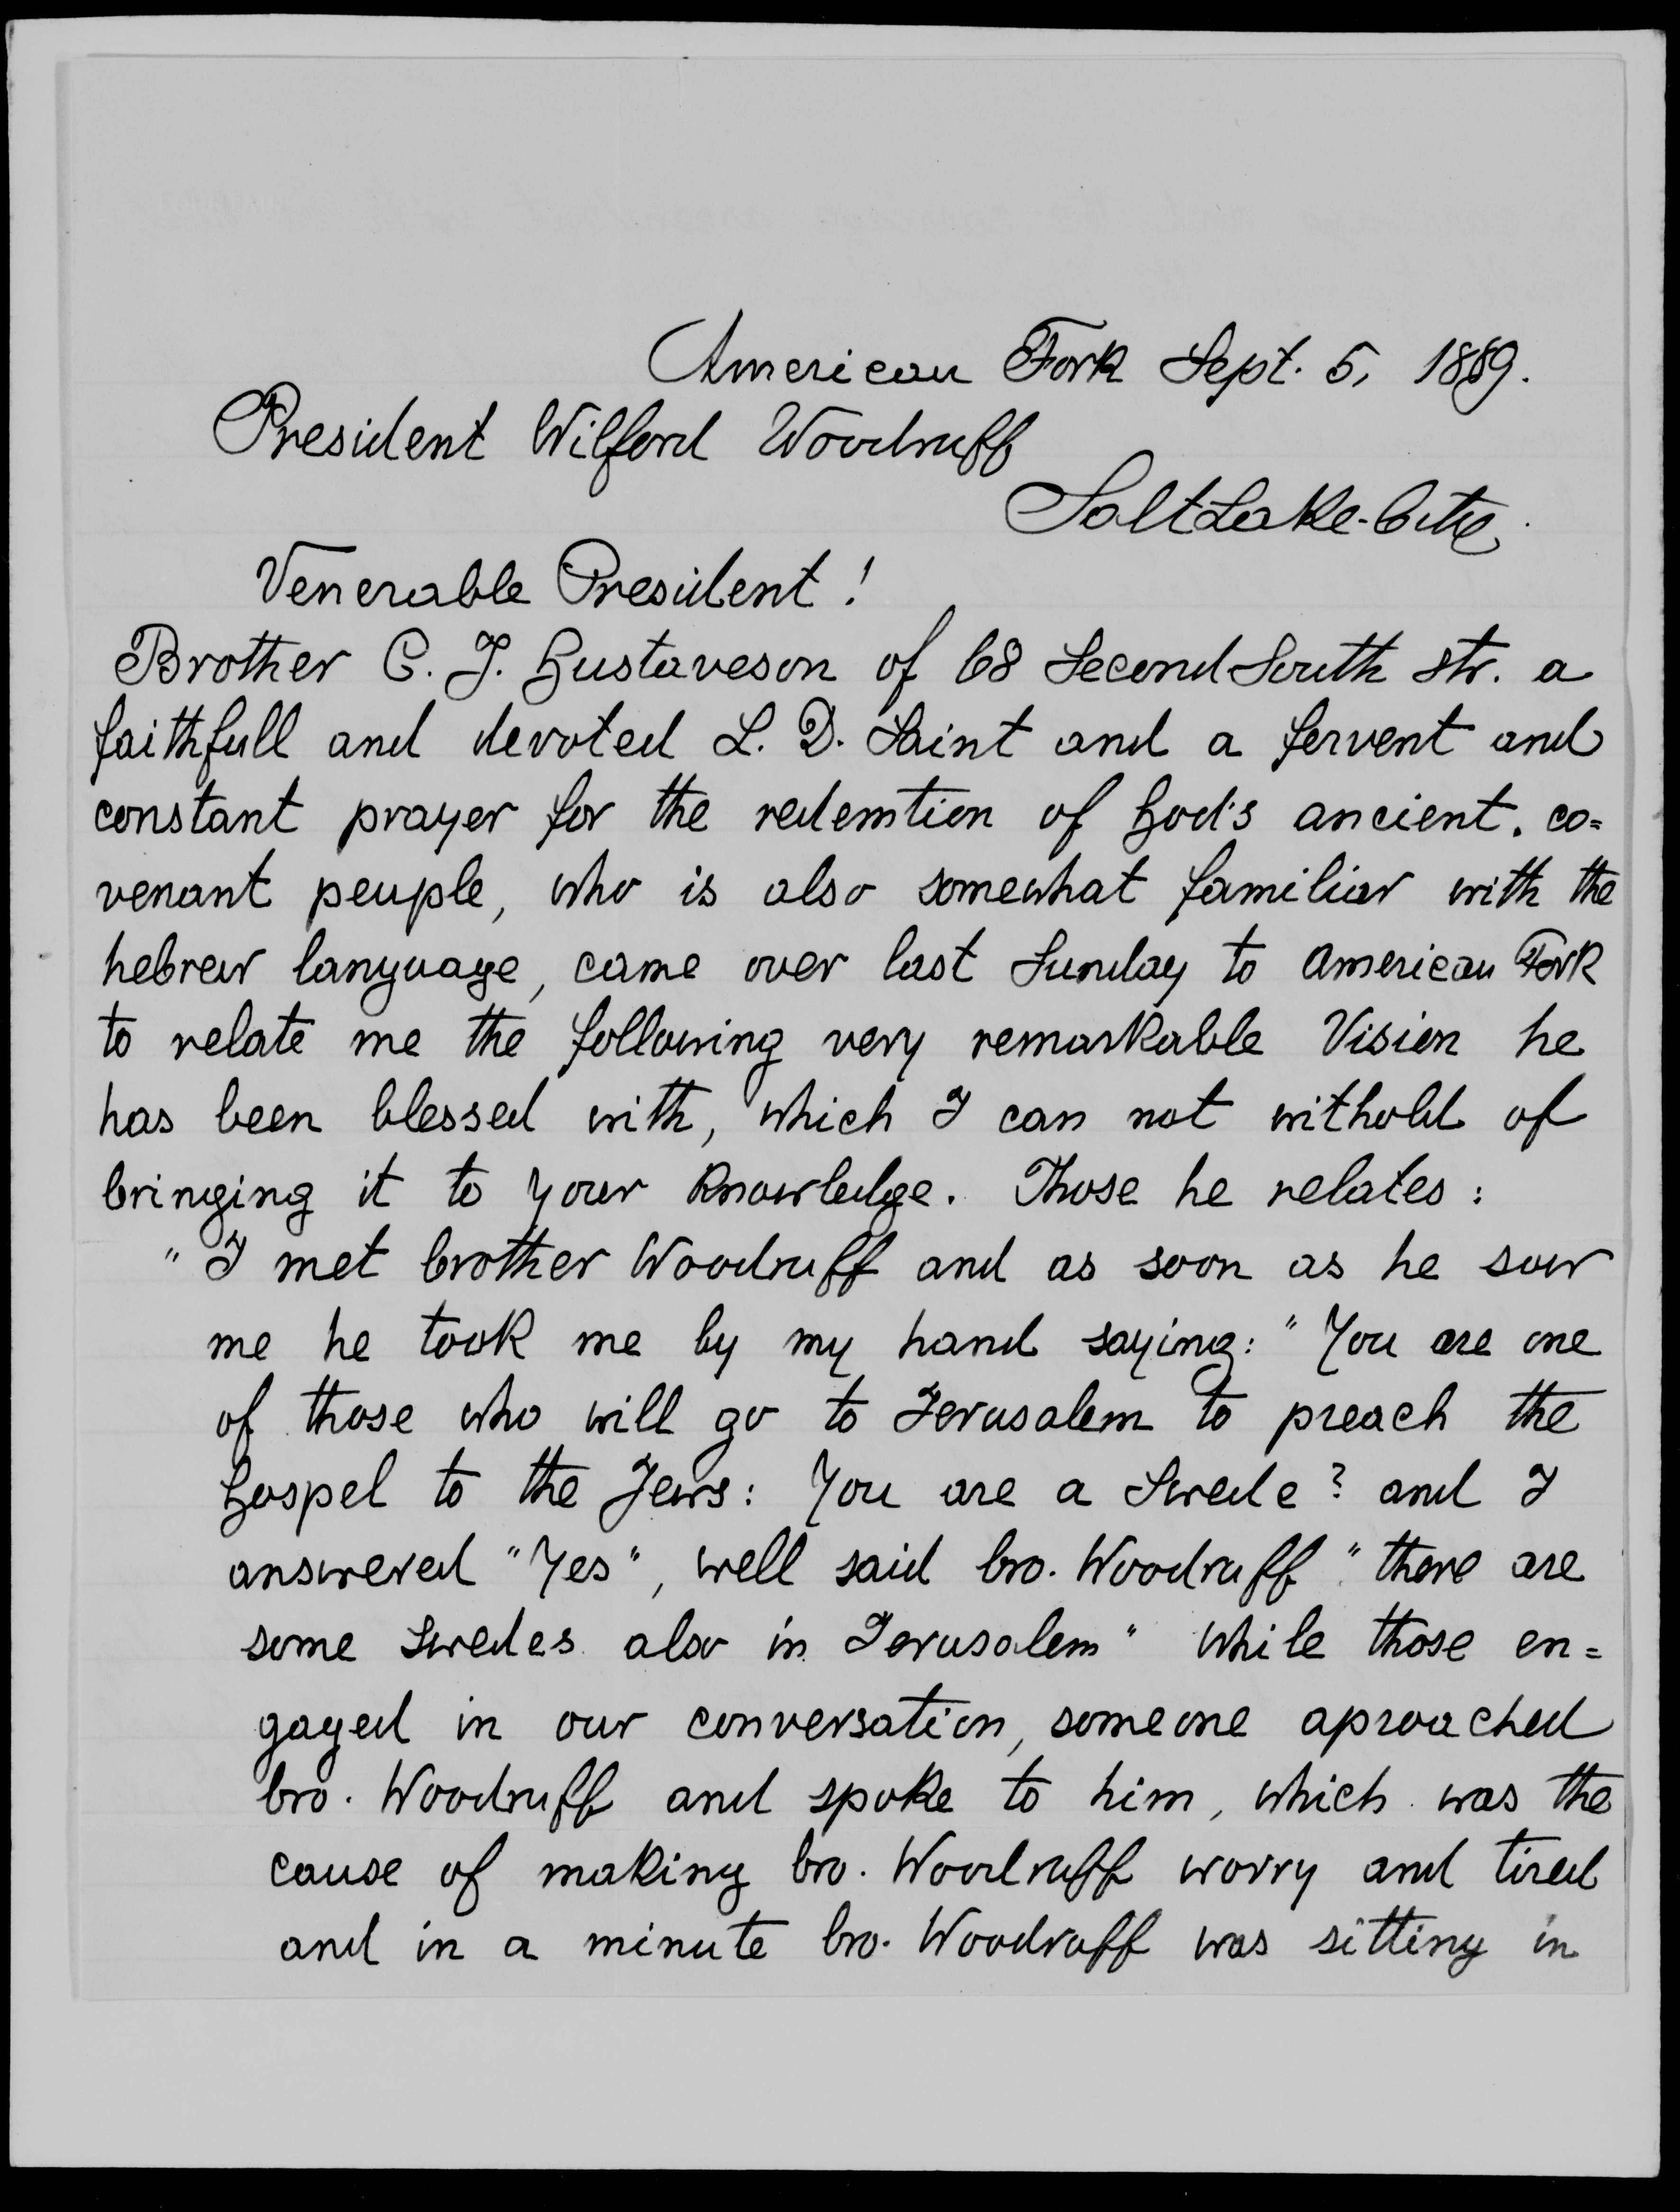 American Fork Sept. 5, 1889.
President Wilford Woodruff
Salt Lake-City.
Venerable President!
Brother C. J. Gustaveson of 68 Second South str. a
faithfull and devoted L. D. Saint and a fervent and
constant prayer for the redemtion of God's ancient. co=
venant peuple, who is also somewhat familiar with the
hebrew language, came over last Sunday to American Fork
to relate me the following very remarkable Vision he
has been blessed with, which I can not withold of
bringing it to your knowledge. Those he relates:
" I met brother Woodruff and as soon as he saw
me he took me by my hand saying: " You are one
of those who will go to Jerusalem to preach the
Gospel to the Jews: You are a Swede? and I
answered "Yes", well said bro. Woodruff " there are
some Swedes also in Jerusalem " while those en=
gaged in our conversation, someone aproached
bro. Woodruff and spoke to him, which was the
cause of making bro. Woodruff worry and tired
and in a minute bro. Woodruff was sitting in